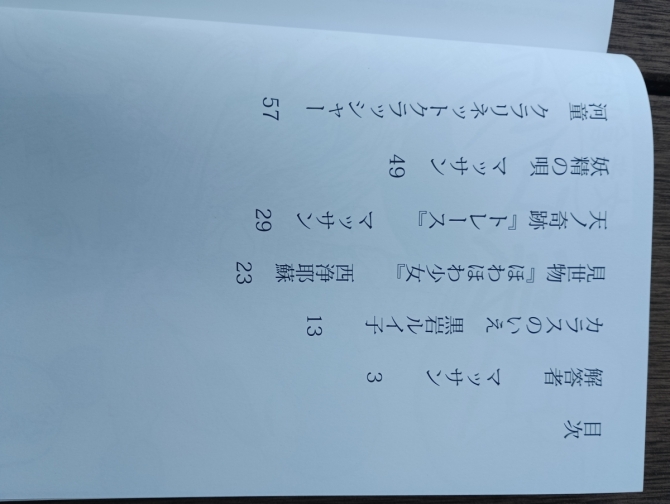 目次
解答者　マッサン　3
カラスのいえ　黒岩ルイ子　13
見世物『ほわほわ少女』　西浄耶蘇　23
天ノ奇跡『トレース』　マッサン　29
妖精の唄　マッサン　49
河童　クラリネットクラッシャー　57